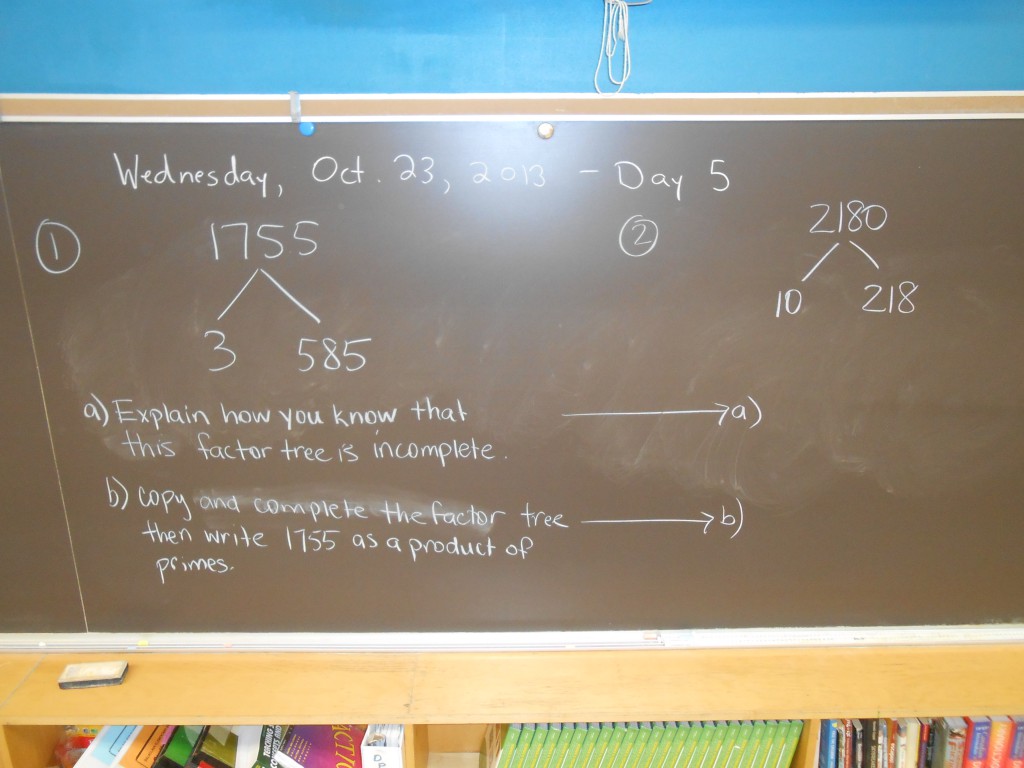 Wednesday, Oct. 23, 2013 - Day 5
① 1755
3 585
② 2180
10 218
a) Explain how you know that
this factor tree is incomplete.
→ a)
b) copy and complete the factor tree
then write 1755 as a product of
primes.
→ b)